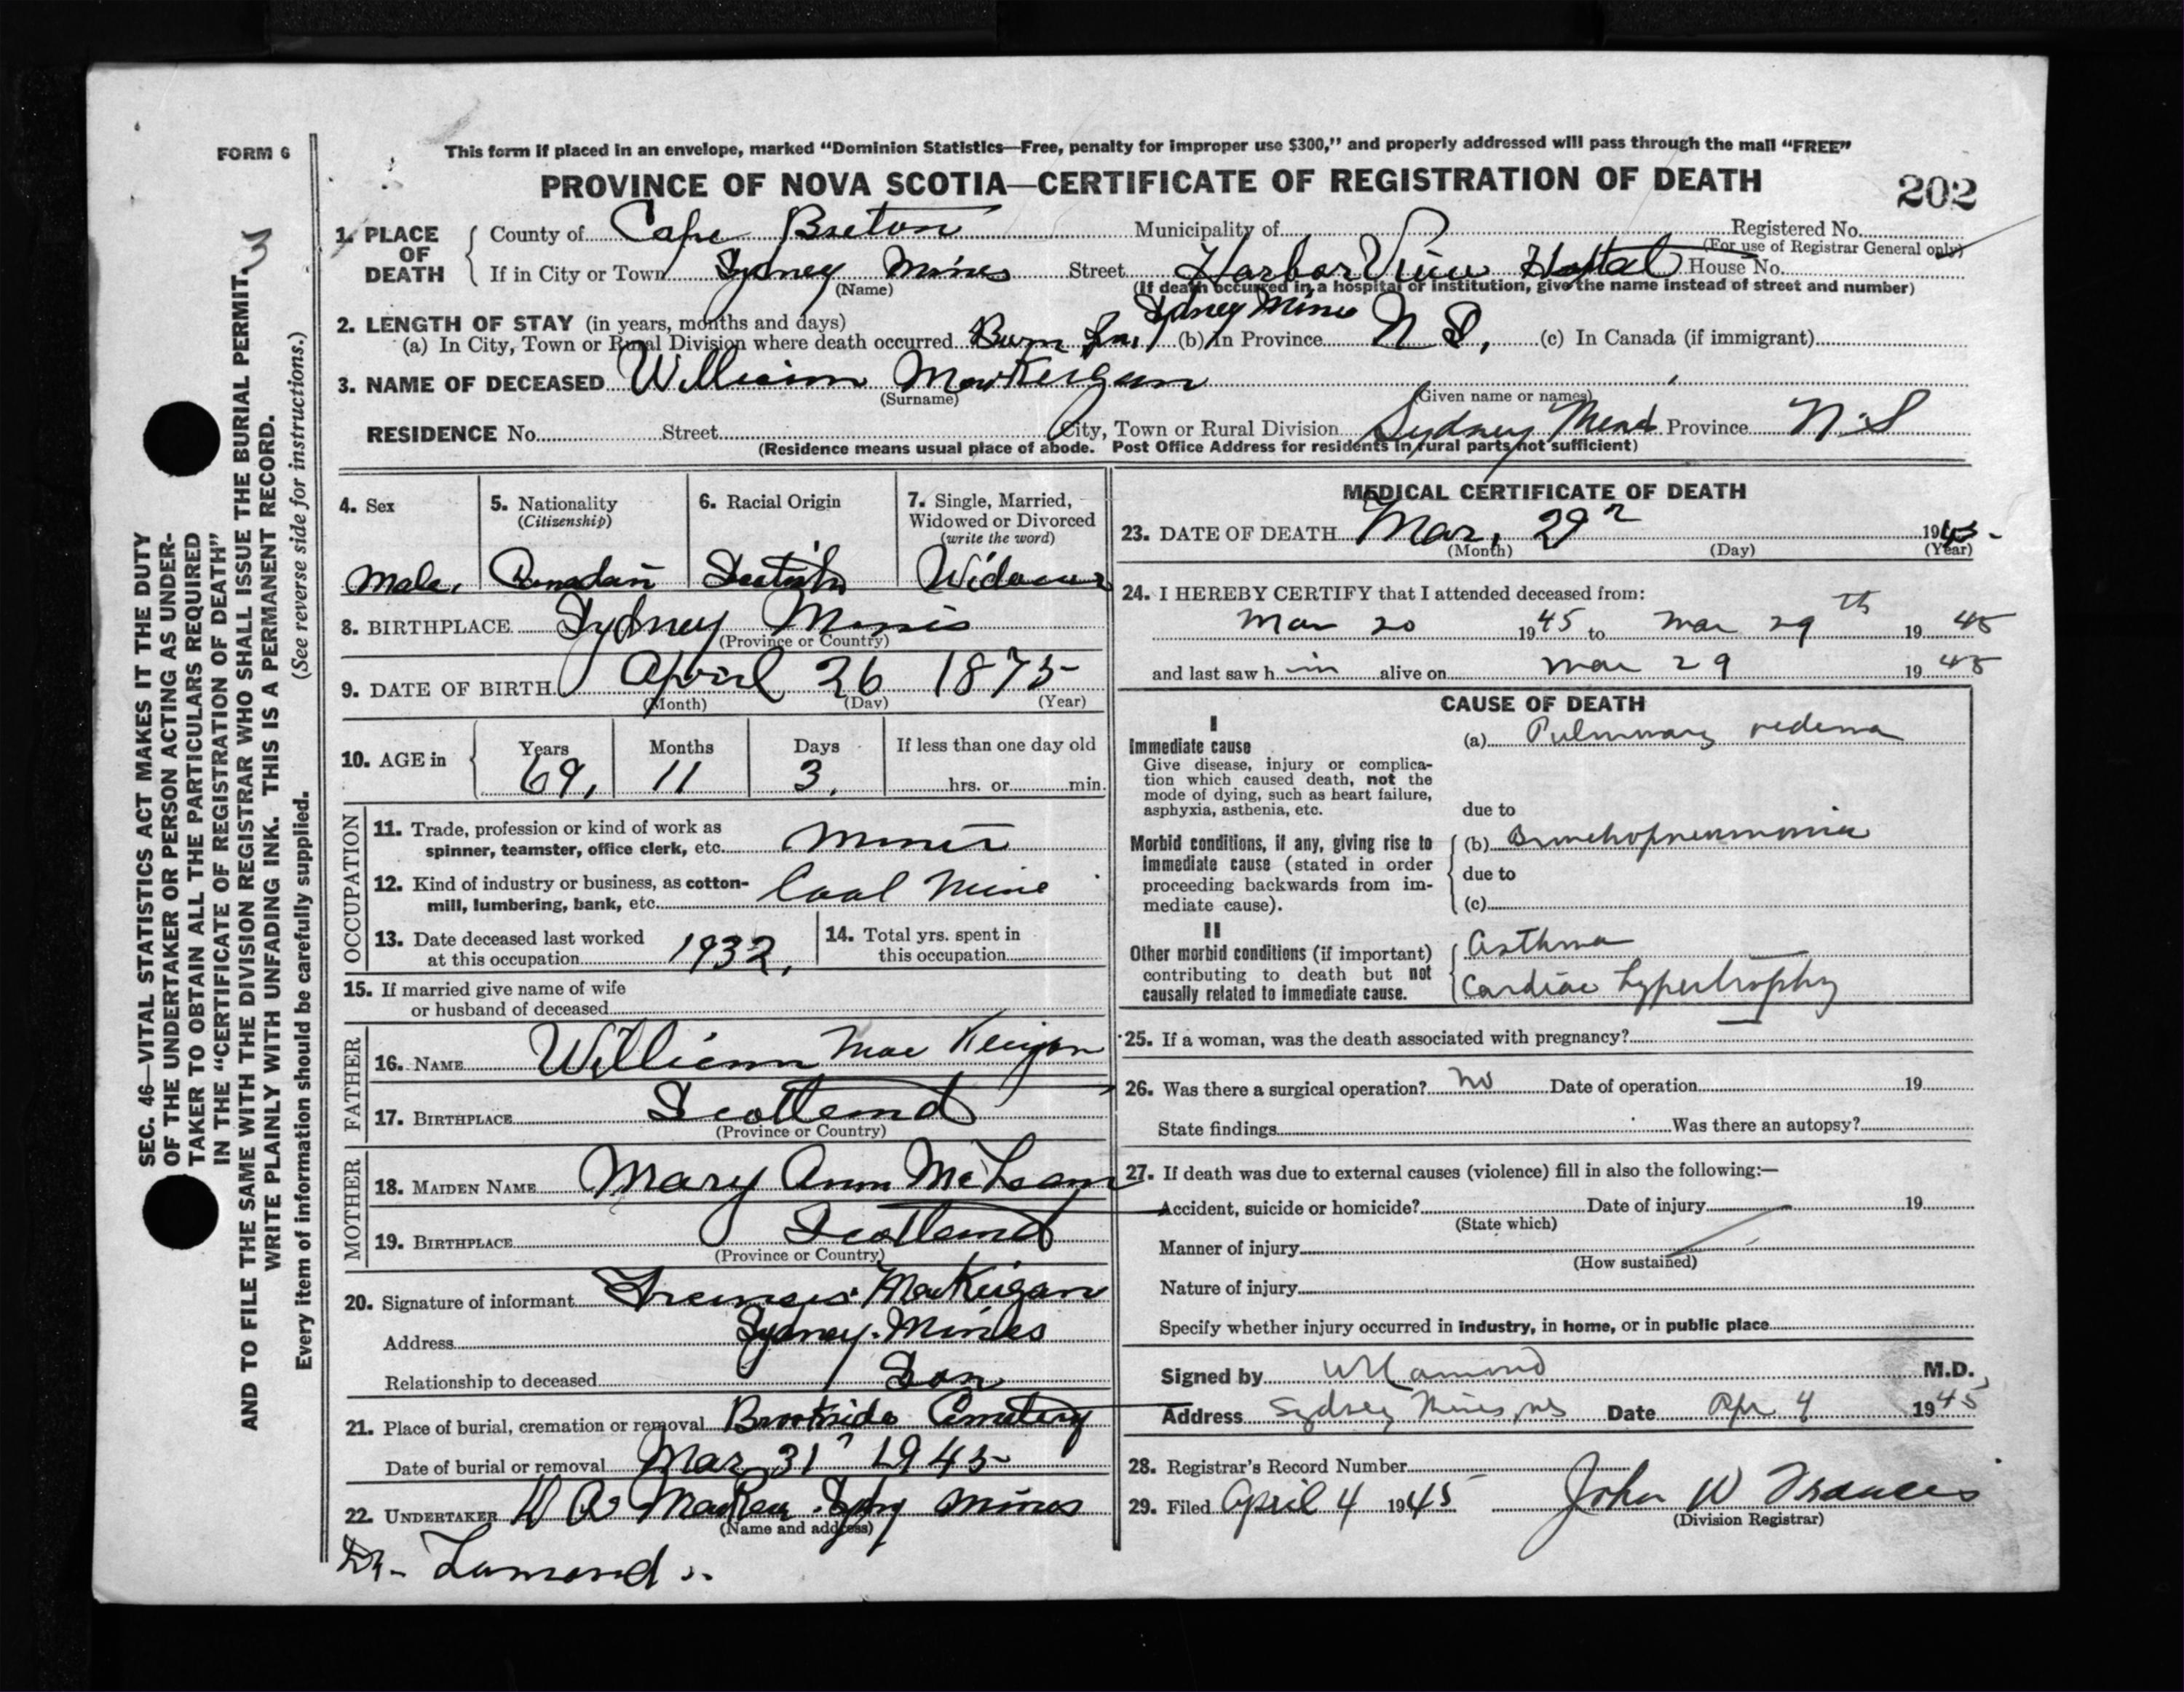 This form if placed in an envelope, marked "Dominion Statistics—Free, penalty for improper use $300," and properly addressed will pass through the mail "FREE"
FORM 6
PROVINCE OF NOVA SCOTIA—CERTIFICATE OF REGISTRATION OF DEATH
202
3
SEC. 46—VITAL STATISTICS ACT MAKES IT THE DUTY
OF THE UNDERTAKER OR PERSON ACTING AS UNDER-
TAKER TO OBTAIN ALL THE PARTICULARS REQUIRED
IN THE "CERTIFICATE OF REGISTRATION OF DEATH"
AND TO FILE THE SAME WITH THE DIVISION REGISTRAR WHO SHALL ISSUE THE BURIAL PERMIT.
WRITE PLAINLY WITH UNFADING INK. THIS IS A PERMANENT RECORD.
Every item of information should be carefully supplied. (See reverse side for instructions.)
1. PLACE OF DEATH
County of Cape Breton Municipality of Registered No.
(For use of Registrar General only)
If in City or Town Sydney Mines Street Harbor View Hospital House No.
(Name) (If death occurred in a hospital or institution, give the name instead of street and number)
2. LENGTH OF STAY (in years, months and days) Sydney Mines
(a) In City, Town or Rural Division where death occurred Born In (b) In Province N S, (c) In Canada (if immigrant)
3. NAME OF DECEASED William MacKeigan
(Surname) (Given name or names)
RESIDENCE No. Street City, Town or Rural Division Sydney Mines Province N.S
(Residence means usual place of abode. Post Office Address for residents in rural parts not sufficient)
4. Sex
Male.
5. Nationality
(Citizenship)
Canadian
6. Racial Origin
Scotish
7. Single, Married,
Widowed or Divorced
(write the word)
Widower
8. BIRTHPLACE Sydney Mines
(Province or Country)
9. DATE OF BIRTH April 26 1875
(Month) (Day) (Year)
10. AGE in
Years Months Days If less than one day old
69, 11 3, hrs. or min.
OCCUPATION
11. Trade, profession or kind of work as
spinner, teamster, office clerk, etc. Miner
12. Kind of industry or business, as cotton-
mill, lumbering, bank, etc. Coal Mine
13. Date deceased last worked
at this occupation 1932,
14. Total yrs. spent in
this occupation
15. If married give name of wife
or husband of deceased
FATHER
16. NAME William MacKeigan
17. BIRTHPLACE Scotland
(Province or Country)
MOTHER
18. MAIDEN NAME Mary Ann McLean
19. BIRTHPLACE Scotland
(Province or Country)
20. Signature of informant Frances MacKeigan
Address Sydney Mines
Relationship to deceased Son
21. Place of burial, cremation or removal Brookside Cemetery
Date of burial or removal Mar 31 1945
22. UNDERTAKER Mines
(Name and address)
Dr. Lamond
MEDICAL CERTIFICATE OF DEATH
23. DATE OF DEATH Mar, 29 1945
(Month) (Day) (Year)
24. I HEREBY CERTIFY that I attended deceased from:
Mar 20 1945 to Mar 29th 1945
and last saw him alive on Mar 29 1945
CAUSE OF DEATH
I
Immediate cause (a) Pulmonary oedema
Give disease, injury or complica-
tion which caused death, not the
mode of dying, such as heart failure,
asphyxia, asthenia, etc. due to
Morbid conditions, if any, giving rise to (b) Bronchopneumonia
immediate cause (stated in order
proceeding backwards from im- due to
mediate cause). (c)
II
Other morbid conditions (if important) Asthma
contributing to death but not
causally related to immediate cause. Cardiac hypertrophy
25. If a woman, was the death associated with pregnancy?
26. Was there a surgical operation? No Date of operation 19
State findings Was there an autopsy?
27. If death was due to external causes (violence) fill in also the following:—
Accident, suicide or homicide? Date of injury 19
(State which)
Manner of injury
(How sustained)
Nature of injury
Specify whether injury occurred in industry, in home, or in public place
Signed by Lamond M.D.
Address Sydney Mines, NS Date Apr 4 1945
28. Registrar's Record Number
29. Filed April 4 1945 John W Frances
(Division Registrar)